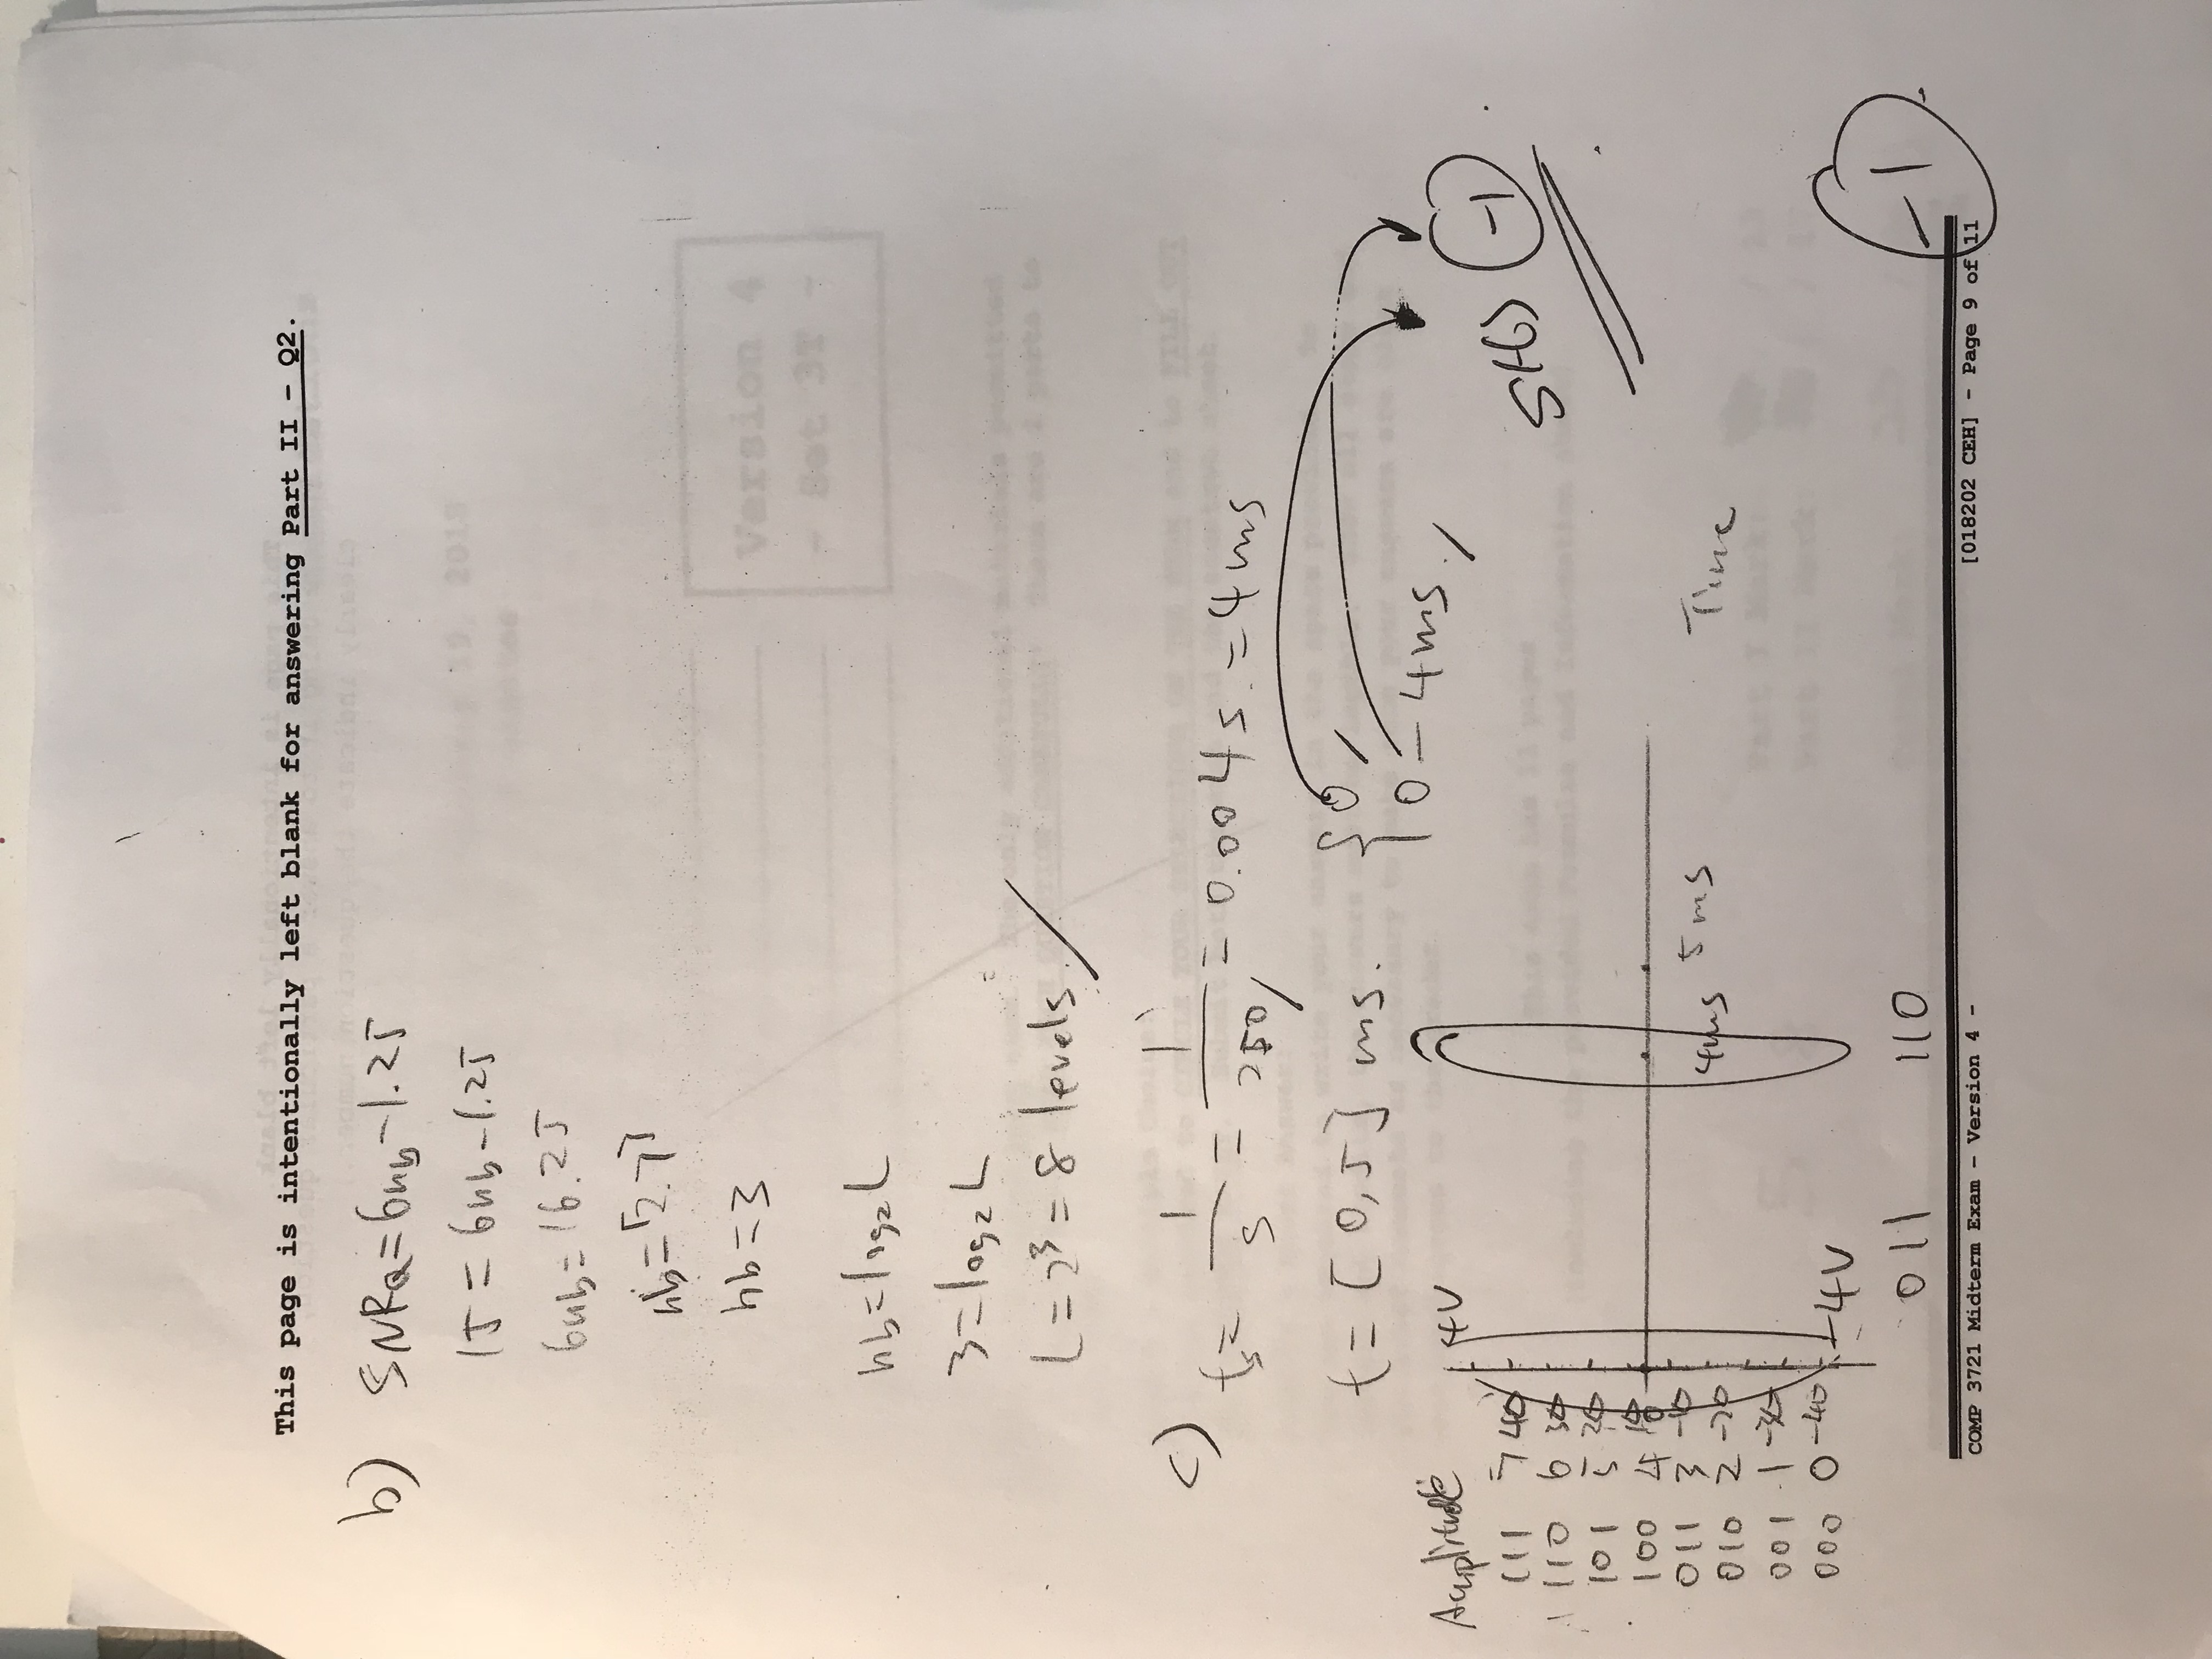 This page is intentionally left blank for answering Part II - Q2.
b) SNRQ = 6nb - 1.25
15 = 6nb - 1.25
6nb = 16.25
nb = ⌈2.7⌉
nb = 3
nb = log2 L
3 = log2 L
L = 2^3 = 8 levels.
Version 4
- Set 3T -
c) ts = 1/s = 1/250 = 0.004s. = 4ms
t = [0, 5] ms. { 0
0 - 4ms.
Amplitude 4V
S(t) -1
111 7 40
110 6 30
101 5 20
100 4 10 0
011 3 -10
010 2 -20
001 1 -30
000 0 -40
4ms 5ms Time
-4V
011 110
-1
COMP 3721 Midterm Exam - Version 4 - [018202 CEH] - Page 9 of 11